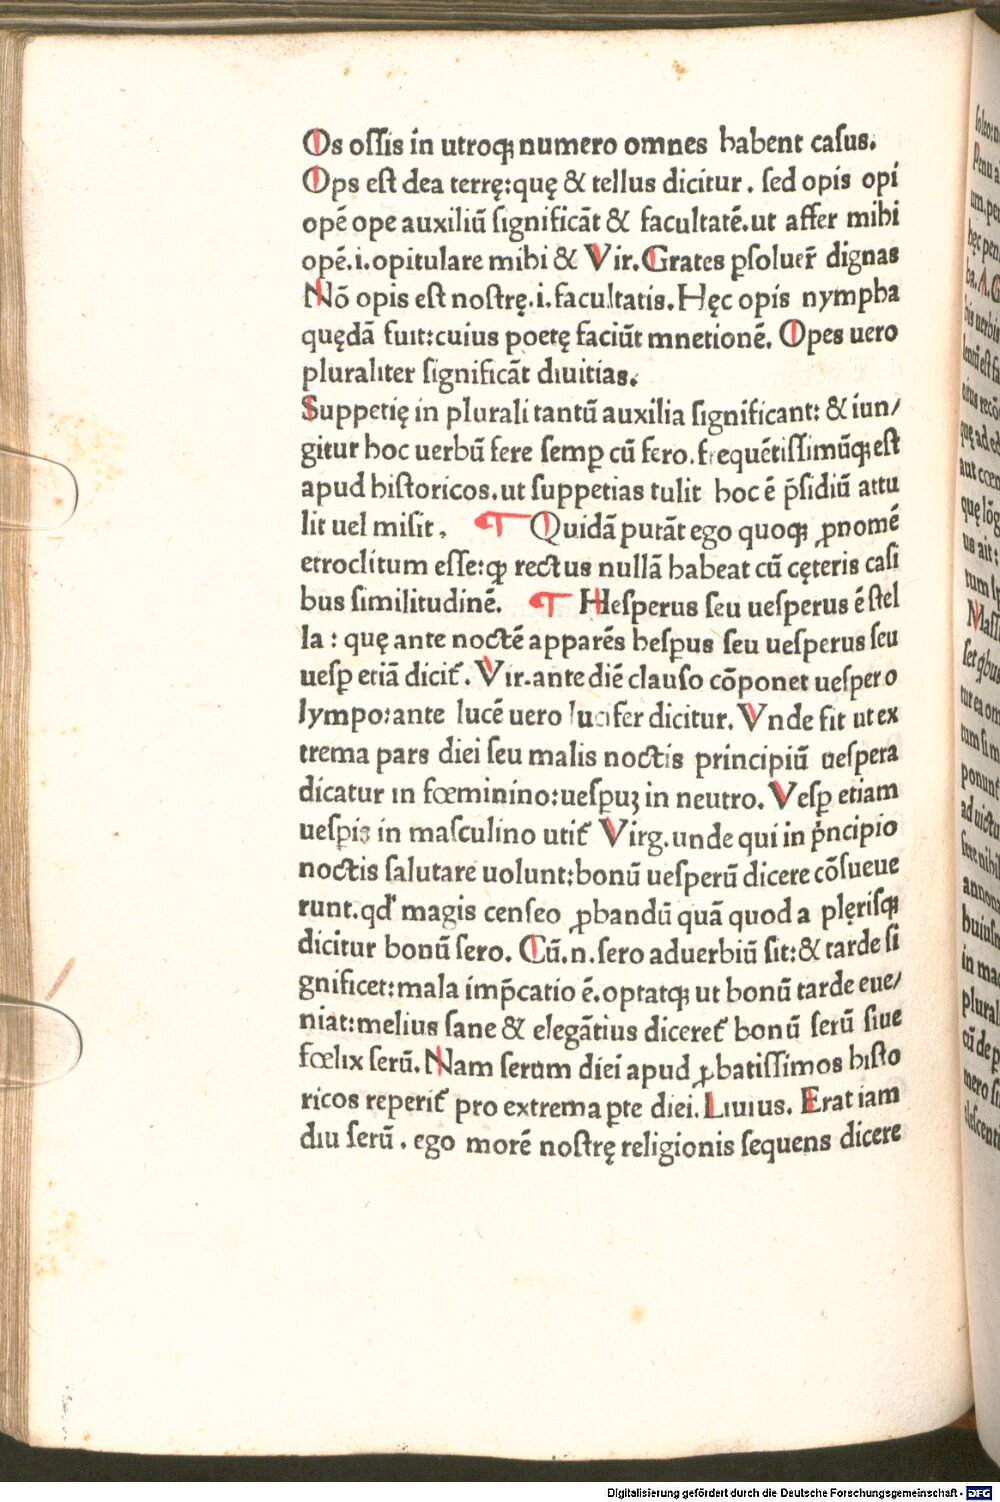 Os oſſis in utroqꝫ numero omnes habent caſus.
Ops eſt dea terrę: quę & tellus dicitur. ſed opis opi
opē ope auxiliū ſignificāt & facultatē. ut affer mihi
opē .i. opitulare mihi & Vir. Grates ꝑſoluer̄ dignas
Nō opis eſt noſtrę .i. facultatis. Hęc opis nympha
quędā fuit: cuius poetę faciūt mnetionē. Opes uero
pluraliter ſignificāt diuitias.
Suppetię in plurali tantū auxilia ſignificant: & iun/
gitur hoc uerbū fere ſemꝑ cū fero. frequētiſſimūqꝫ eſt
apud hiſtoricos. ut ſuppetias tulit hoc ē p̄ſidiū attu
lit uel miſit. ¶ Quidā putāt ego quoqꝫ ꝓnomē
etroclitum eſſe: ꝙ rectus nullā habeat cū cęteris caſi
bus ſimilitudinē. ¶ Heſperus ſeu ueſperus ē ſtel
la: quę ante noctē apparēs heſꝑus ſeu ueſperus ſeu
ueſꝑ etiā dicit᷑. Vir. ante diē clauſo cōponet ueſpero
lympo: ante lucē uero lucifer dicitur. Vnde fit ut ex
trema pars diei ſeu malis noctis principiū ueſpera
dicatur in fœminino: ueſꝑuꝫ in neutro. Veſꝑ etiam
ueſꝑis in maſculino utit᷑ Virg. unde qui in p̄ncipio
noctis ſalutare uolunt: bonū ueſperū dicere cōſueue
runt. qd̄ magis cenſeo ꝓbandū quā quod a pleriſqꝫ
dicitur bonū ſero. Cū .n. ſero aduerbiū ſit: & tarde ſi
gnificet: mala imp̄catio ē. optatqꝫ ut bonū tarde eue/
niat: melius ſane & elegātius diceret᷑ bonū ſerū ſiue
fœlix ſerū. Nam ſerum diei apud ꝓbatiſſimos hiſto
ricos reperit᷑ pro extrema ꝑte diei. Liuius. Erat iam
diu ſerū. ego morē noſtrę religionis ſequens dicere
Digitalisierung gefördert durch die Deutsche Forschungsgemeinschaft - DFG